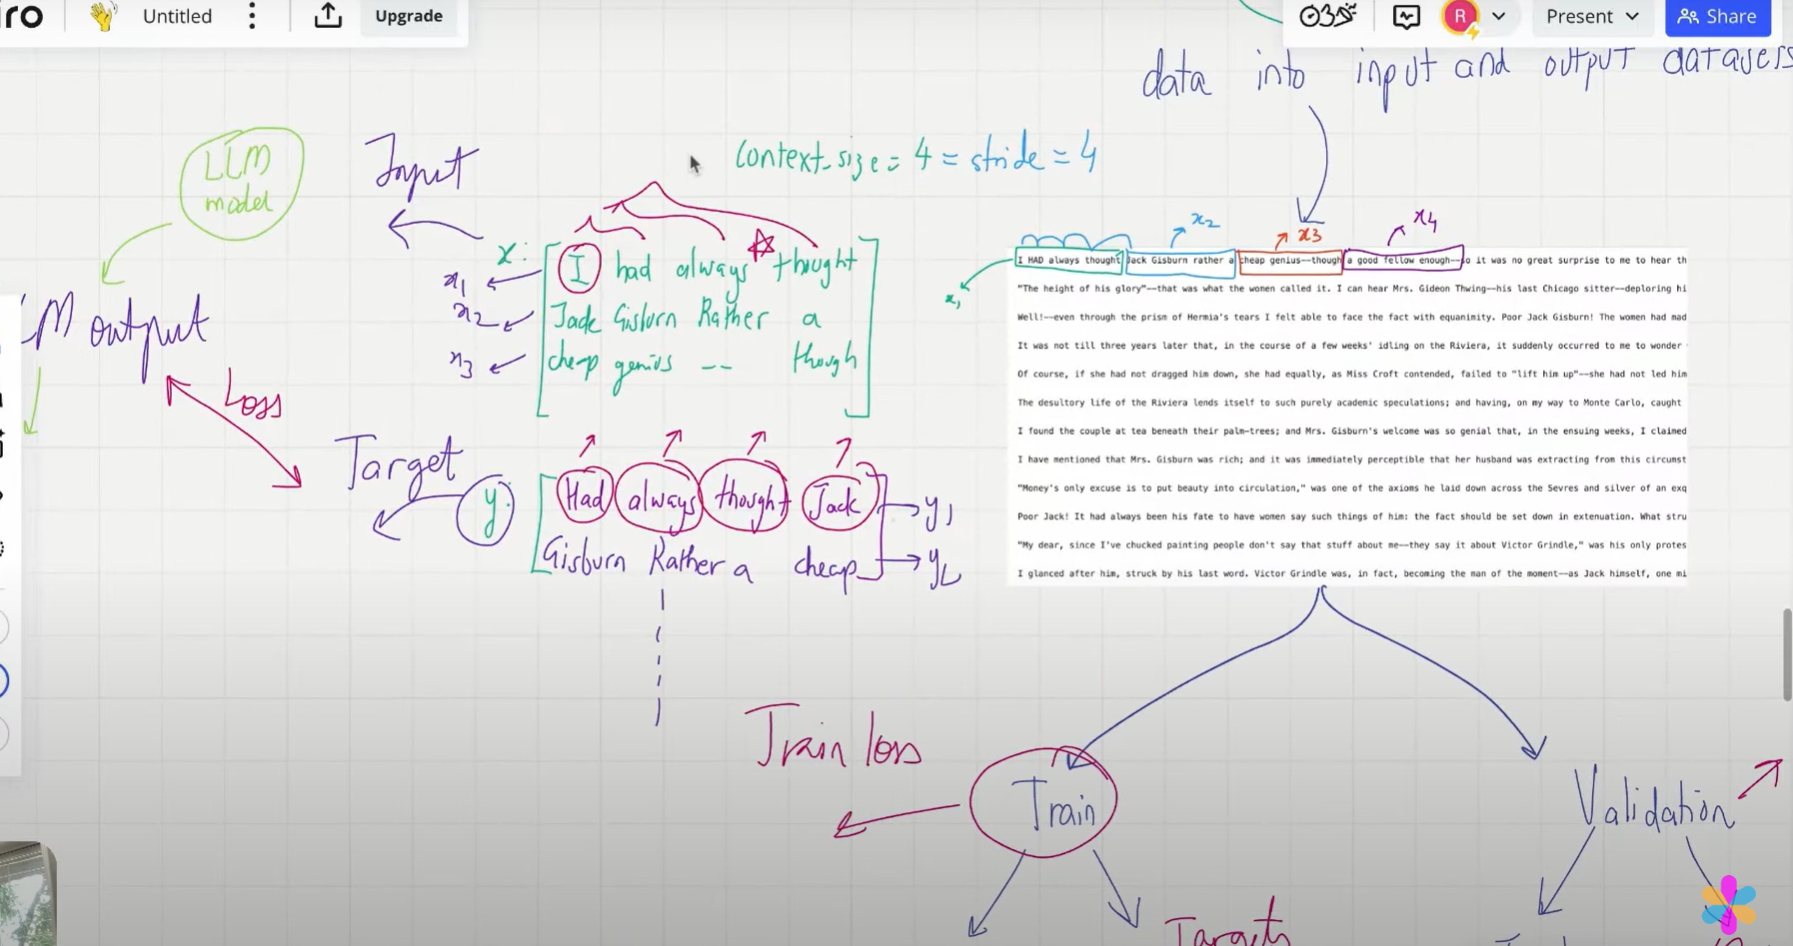 iro Untitled Upgrade Present Share
R
data into input and output datasets
LLM
model
Input
context_size = 4 = stride = 4
x:
I had always thought
Jack Gisburn Rather a
cheap genius -- though
x1
x2
x3
x1
x2
x3
x4
LLM output
Loss
Target
y:
Had always thought Jack
Gisburn Rather a cheap
y1
y2
I HAD always thought Jack Gisburn rather a cheap genius--though a good fellow enough--so it was no great surprise to me to hear th
"The height of his glory"--that was what the women called it. I can hear Mrs. Gideon Thwing--his last Chicago sitter--deploring hi
Well!--even through the prism of Hermia's tears I felt able to face the fact with equanimity. Poor Jack Gisburn! The women had mad
It was not till three years later that, in the course of a few weeks' idling on the Riviera, it suddenly occurred to me to wonder
Of course, if she had not dragged him down, she had equally, as Miss Croft contended, failed to "lift him up"--she had not led him
The desultory life of the Riviera lends itself to such purely academic speculations; and having, on my way to Monte Carlo, caught
I found the couple at tea beneath their palm-trees; and Mrs. Gisburn's welcome was so genial that, in the ensuing weeks, I claimed
I have mentioned that Mrs. Gisburn was rich; and it was immediately perceptible that her husband was extracting from this circumst
"Money's only excuse is to put beauty into circulation," was one of the axioms he laid down across the Sevres and silver of an exq
Poor Jack! It had always been his fate to have women say such things of him: the fact should be set down in extenuation. What stru
"My dear, since I've chucked painting people don't say that stuff about me--they say it about Victor Grindle," was his only protes
I glanced after him, struck by his last word. Victor Grindle was, in fact, becoming the man of the moment--as Jack himself, one mi
Train loss
Train
Validation
Targets